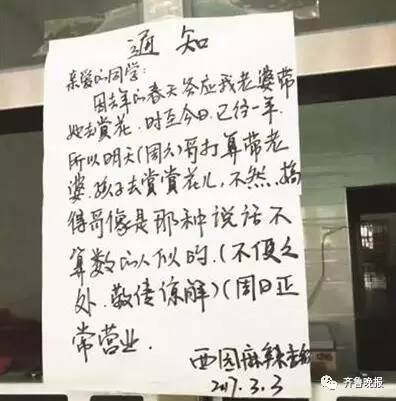 通知
亲爱的同学:
因去年的春天答应我老婆带
她去赏花.时至今日.已经一年.
所以明天(周六)哥打算带老
婆.孩子去赏赏花儿,不然.搞
得哥像是那种说话不
算数的人似的.(不便之
处.敬请谅解)(周日正
常营业.
西园麻辣香锅
2017.3.3
齐鲁晚报